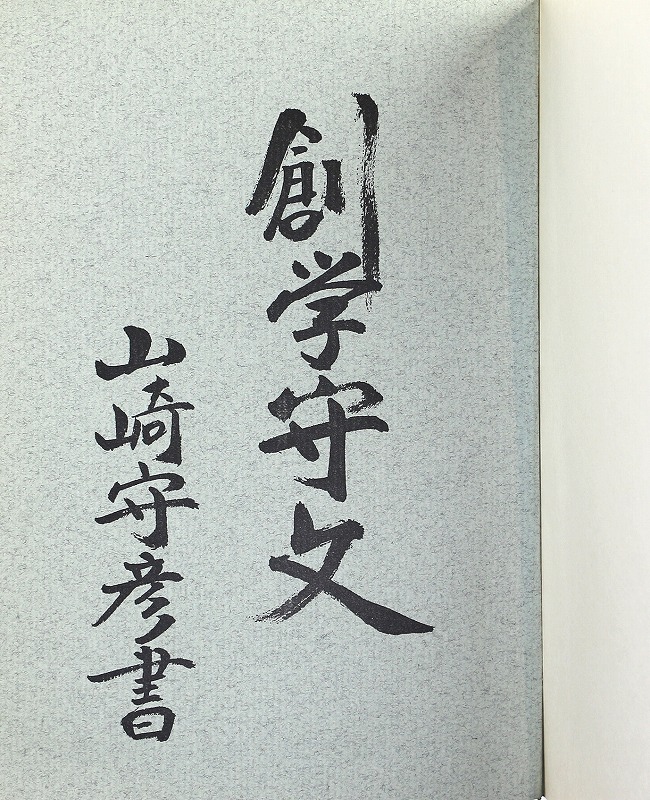 創学守文
山崎守彦書